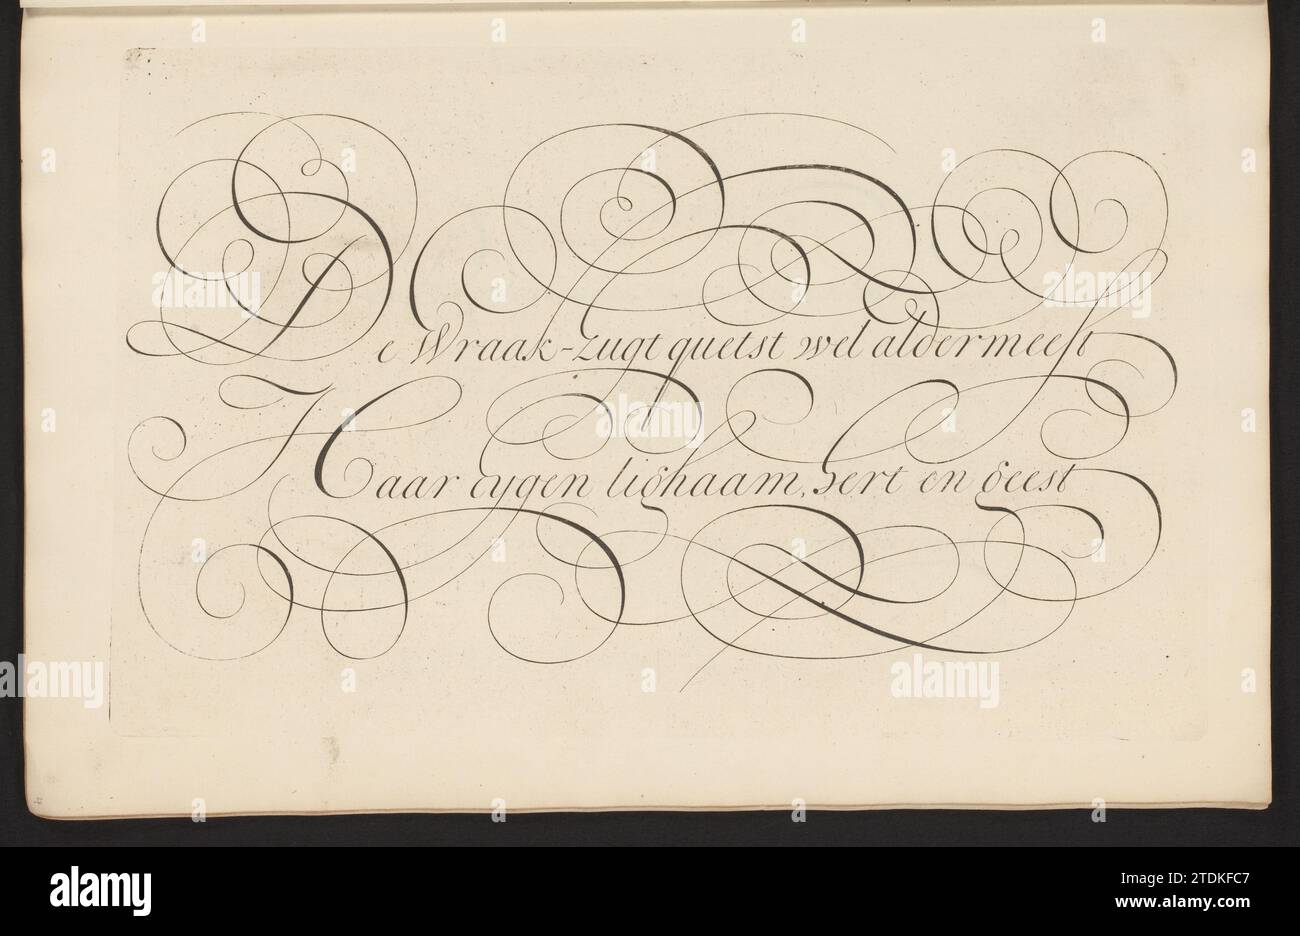 De Wraak-zugt quetst wel aldermeest
Haar eygen lighaam, hert en geest
alamy
Image ID: 2TDKFC7
www.alamy.com